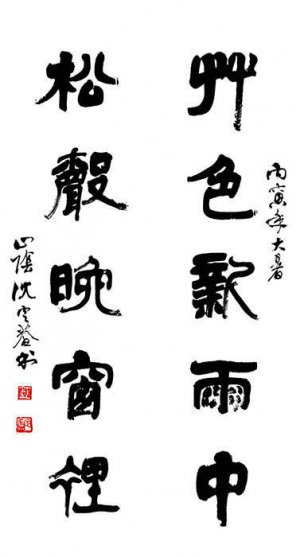 丙寅年大暑
艸色新雨中
松聲晚窗裡
山陰沈定庵書